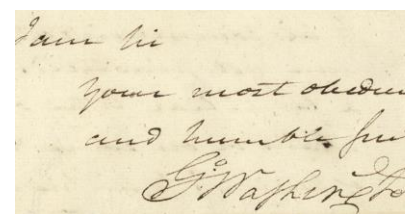 I am Sir
Your most obedien
and humble Ser
G:Washingto